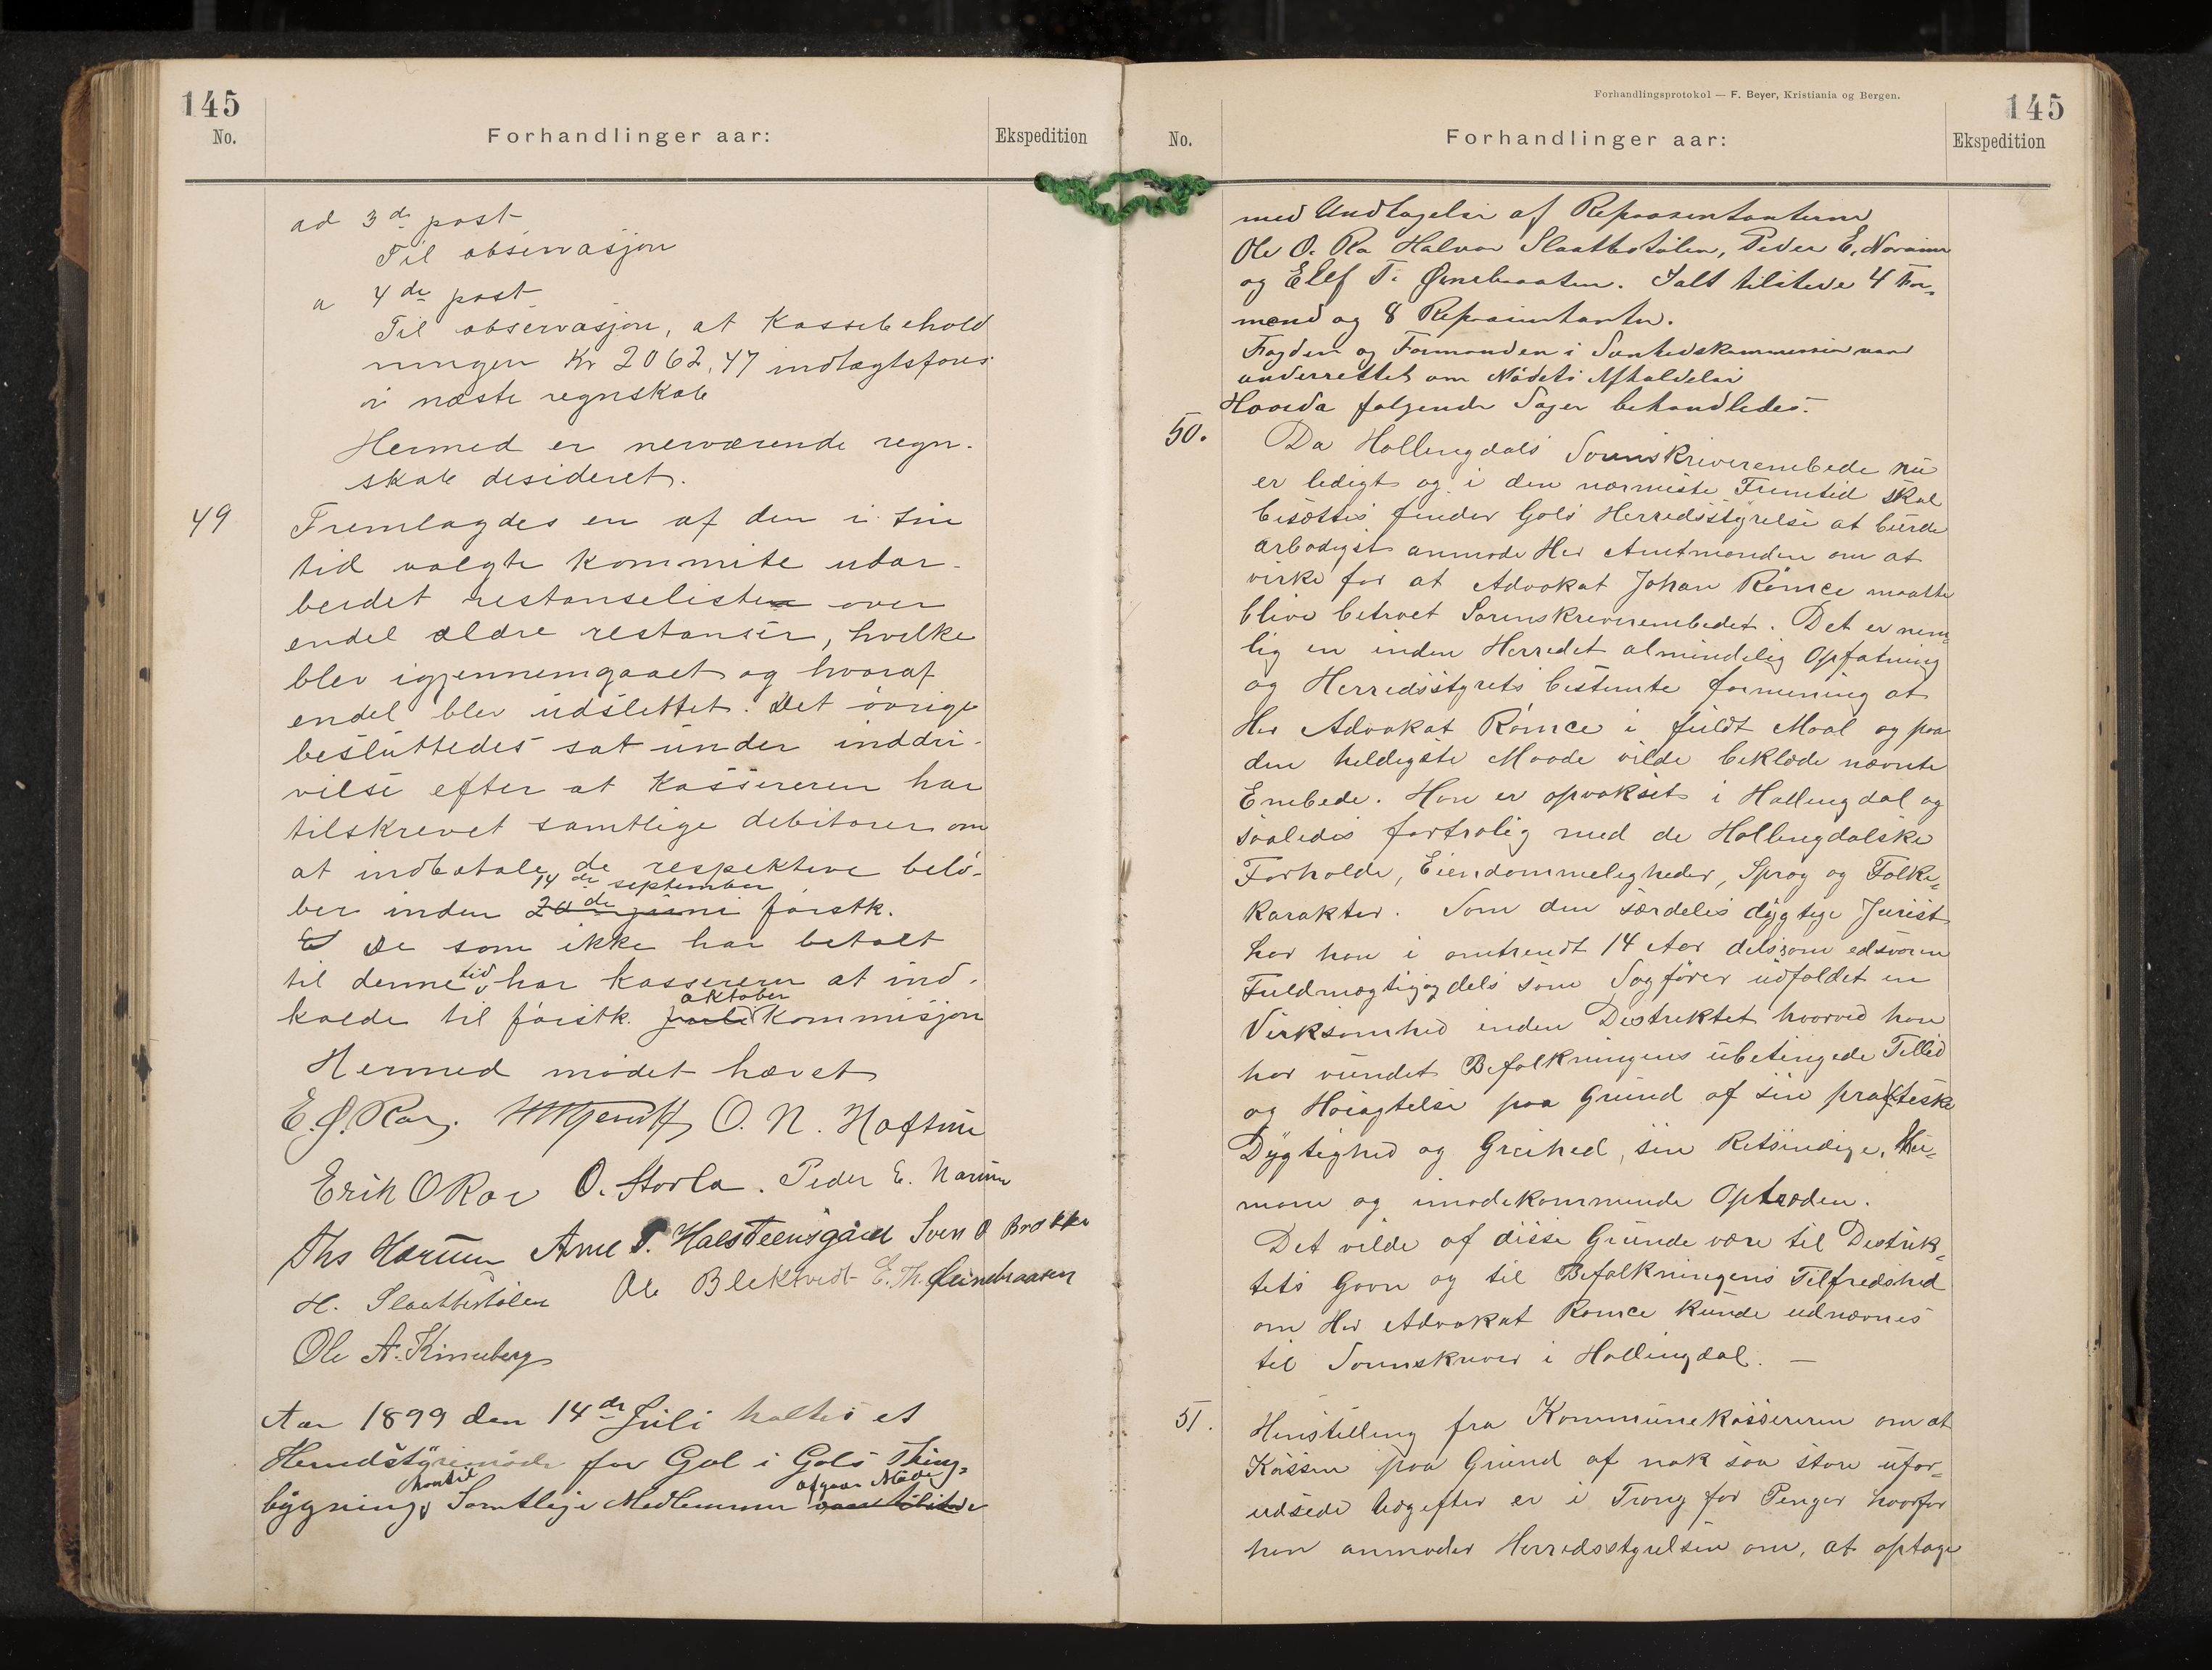 145
No.
Forhandlinger aar:
Ekspedition
ad 3de post
Til observasjon
a 4de post
Til observasjon, at Kassebehold
ningen Kr 2062,47 indtægtsføres
i næste regnskab
Hermed er nerværende regn-
skab desideret.
49
Fremlagdes en af den i sin
tid valgte kommite udar-
beidet restanseliste over
endel ældre restanser, hvilke
blev igjennemgaaet og hvoraf
endel blev udslettet. Det øvrige
besluttedes sat under inddri-
velse efter at Kassereren har
tilskrevet samtlige debitorer om
at indbetale de respektive belø-
14de september
ber inden 20de juni førstk.
De som ikke har betalt
til denne tid har kassereren at ind-
oktober
kalde til førstk. juli Kommisjon
Hermed mødet hævet
E. O. Roe. O. N. Hoftun
Erik O Roe O. Storla. Peder E. Narum
Ths Narum Arne T. Halsteensgård Sven O Brøkke
H. Slaattestølen Ole Blektvedt E. Th. Øinebraaten
Ole A. Kinneberg
Aar 1899 den 14de Juli holtes et
Herredstyremøde for Gol i Gols Thing-
hvortil afgaar Møde
bygning, Samtlige Medlemmer vare tilstede
Forhandlingsprotokol — F. Beyer, Kristiania og Bergen.
145
No.
Forhandlinger aar:
Ekspedition
med Undtagelse af Repræsentanterne
Ole O. Ro Halvor Slaattestølen, Peder E. Narum
og Elef T. Øinebraaten. Ialt tilstede 4 For-
mænd og 8 Repræsentanter.
Fogden og Formanden i Sundhedskommissionen var
underrettet om Mødets Afholdelse
Hvorda følgende Sager behandledes:
50.
Da Hallingdals Sorenskriverembede nu
er ledigt og i den nærmeste Fremtid skal
besættes finder Gols Herredsstyrelse at burde
ærbødigst anmode Her Amtmanden om at
virke for at Advokat Johan Rømce maatte
blive betroet Sorenskriverembedet. Det er nem-
lig en inden Herredet almindelig Opfatning
og Herredsstyrets bestemte formening at
Her Advokat Rømce i fuldt Maal og paa
den heldigste Maade vilde beklæde nævnte
Embede. Han er opvokset i Hallingdal og
saaledes fortrolig med de Hallingdalske
Forholde, Eiendommeligheder, Sprog og Folke-
karakter. Som den særdeles dygtige Jurist
har han i omtrendt 14 Aar dels som edsvoren
Fuldmægtig og dels som Sagfører udfoldet en
Virksomhed inden Destriktet hvorved han
har vundet Befolkningens ubetingede Tillid
og Høiagtelse paa Grund af sin praktiske
Dygtighed og Greihed, sin Retsindige, Hu-
mane og imødekommende Optræden.
Det vilde af disse Grunde være til Destrik-
tets Gavn og til Befolkningens Tilfredshed
om Her Advokat Rømce kunde udnævnes
til Sorenskriver i Hallingdal. —
51.
Henstilling fra Kommunekassereren om at
Kassen paa Grund af nok saa store ufor-
udsede Udgifter er i Trang for Penger hvorfor
han anmoder Herredsstyrelsen om, at optage